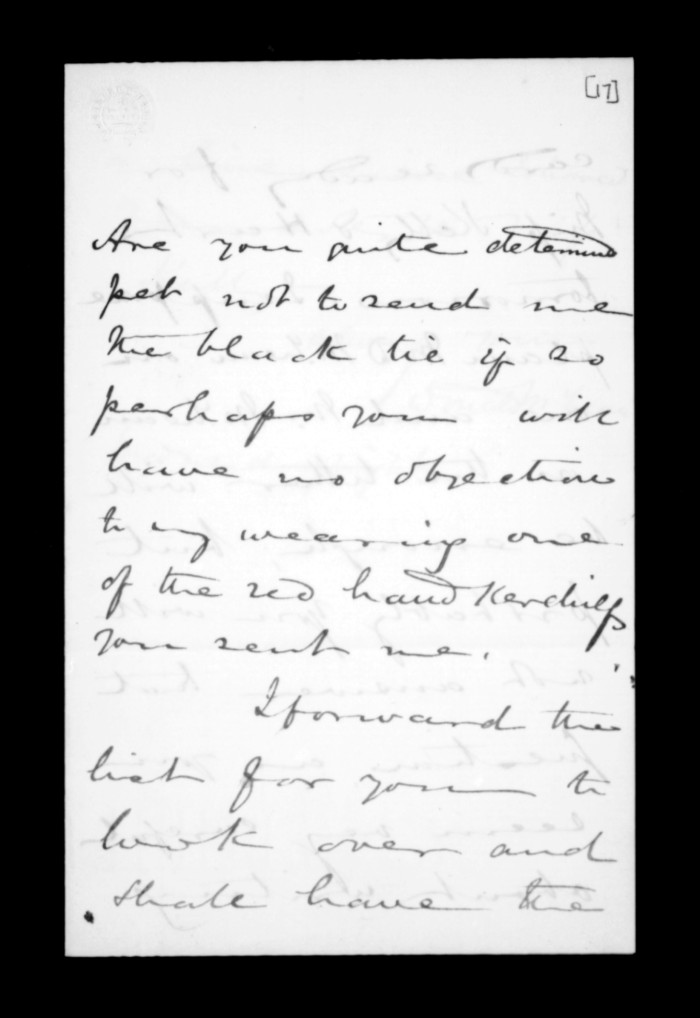 [17]
Are you quite detemind
pet not to send me
the black tie if so
perhaps you will
have no objection
to my wearing one
of the red handkerchiefs
you sent me.
I forward the
list for you to
look over and
shall have the